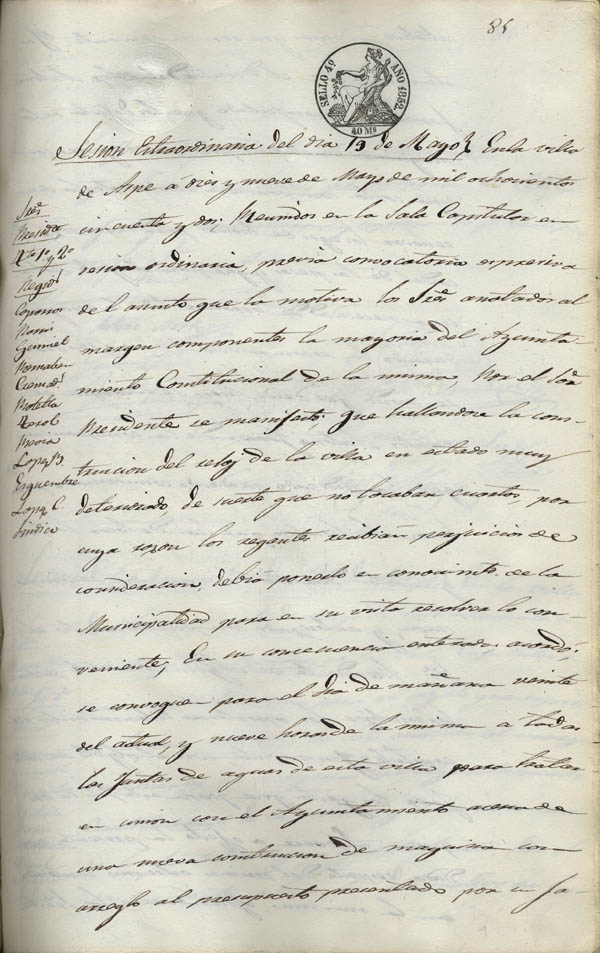 85
SELLO 4º AÑO 1852.
40 Ms
Sesion Estraordinaria del dia 19 de Mayo En la villa
de Aspe a dies y nueve de Mayo de mil ochocientos
cincuenta y dos; Reunidos en la Sala Capitular en
sesion ordinaria, previa convocatoria espresiva
del asunto que la motiva los Sres. anotados al
margen componentes la mayoria del Ayunta-
miento Constitucional de la misma, por el Sor.
Presidente se manifestó; que hallandose la cons-
truccion del reloj de la villa en estado muy
deteriorado, de suerte que no tocaban cuartos, por
cuya razon los regantes recibian perjuicios de
consideracion, debia ponerlo en conocimto. de la
Municipalidad para en su vista resolver lo con-
veniente; En su consecuencia enterados, acordó;
se convoque para el dia de mañana veinte
del actual, y nueve horas de la misma a todas
las Juntas de aguas de esta villa para tratar
en union con el Ayuntamiento acerca de
una nueva construccion de maquina con
arreglo al presupuesto presentado por un Ja-
Sres.
Preside.
Tes. 1º y 2º
Regid.
Caparros
Gumiel
Cremas.
Botella
Lopez B.
Erquembre
Lopez C.
Sindico